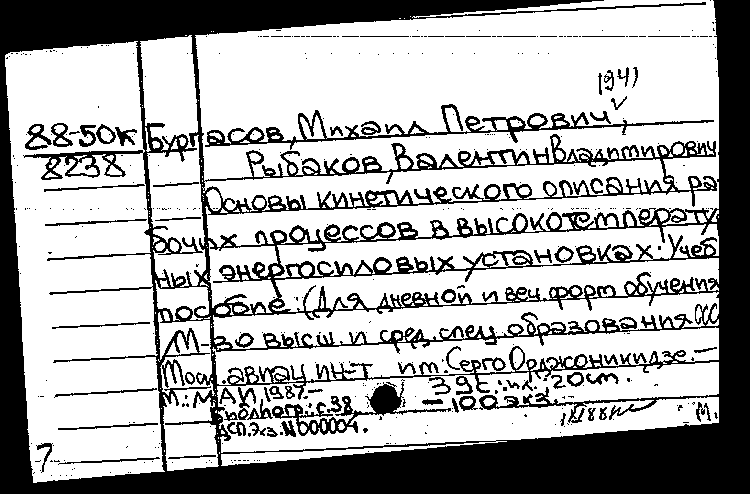 1941
88-50к Бургасов, Михаил Петрович,
8238 Рыбаков, Валентин Владимирович
Основы кинетического описания ра-
бочих процессов в высокотемперату
ных энергосиловых установках: Учеб
пособие: (Для дневной и веч. форм обучения
М-во высш. и сред. спец. образования ССС
Моск. авиац. ин-т им. Серго Орджоникидзе. —
М.: МАИ, 1987. — 39с.: ил.; 20см.
Библиогр.: с. 38. — 100 экз.
ДСП. Экз. N000004.
М.
7